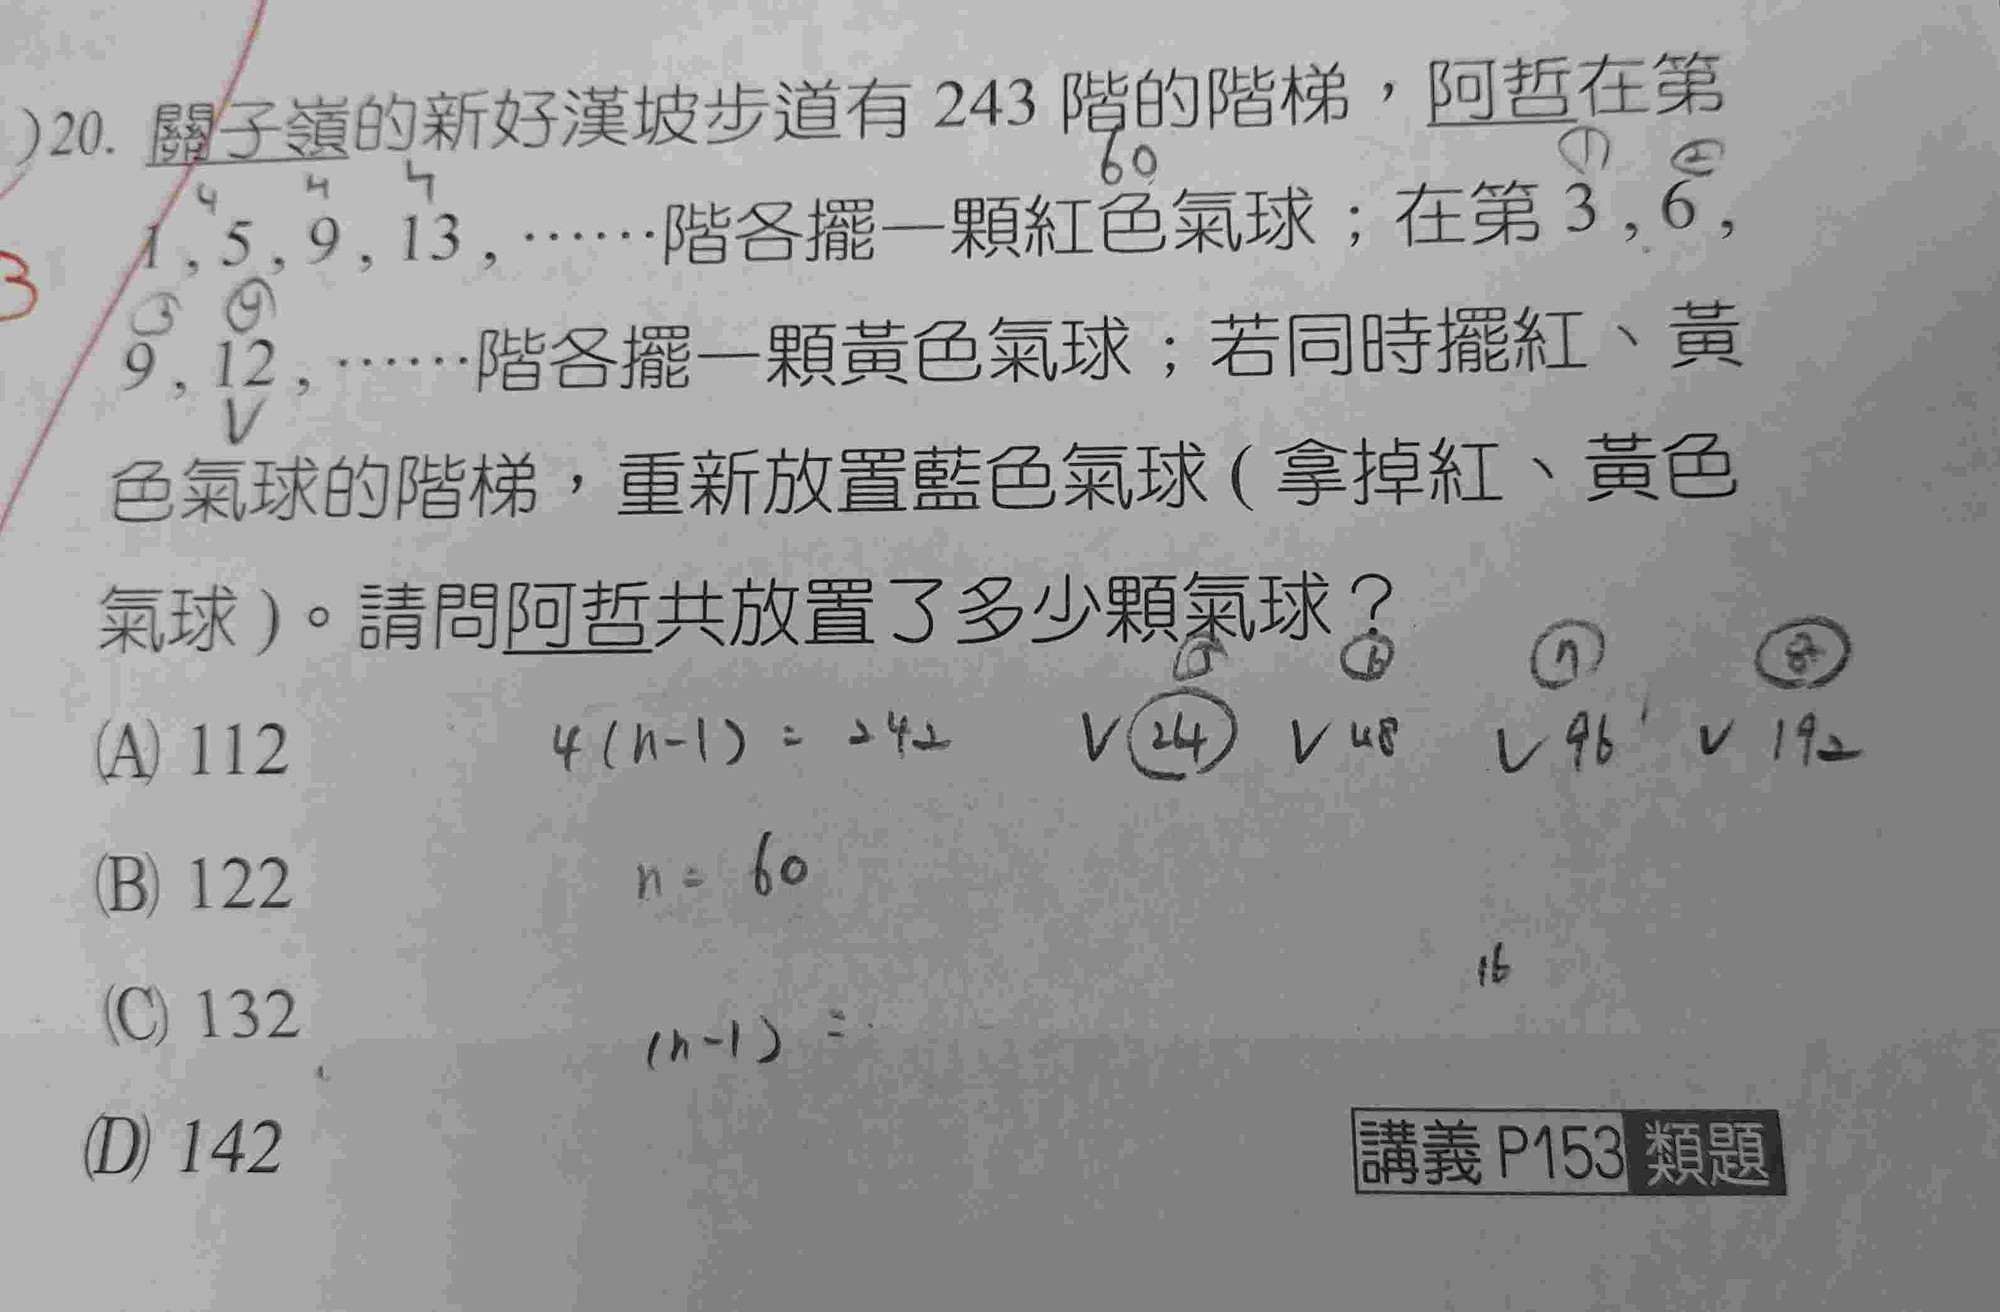 )20. 關子嶺的新好漢坡步道有 243 階的階梯，阿哲在第
60 ① ②
4 4 4
1 , 5 , 9 , 13 , ……階各擺一顆紅色氣球；在第 3 , 6 ,
3
③ ④
9 , 12 , ……階各擺一顆黃色氣球；若同時擺紅、黃
V
色氣球的階梯，重新放置藍色氣球(拿掉紅、黃色
氣球)。請問阿哲共放置了多少顆氣球？
⑤ ⑥ ⑦ ⑧
(A) 112 4(n-1) = 242 V 24 V 48 V 96 V 192
(B) 122 n = 60
16
(C) 132 (n-1) =
(D) 142
講義 P153 類題